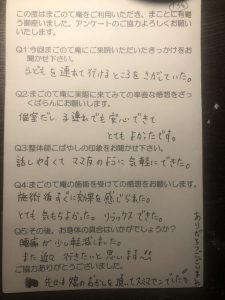 この度はまごのて庵をご利用いただき、まことに有難
う御座いました。アンケートのご協力よろしくお願い
いたします。
Q1:今回まごのて庵にご来院いただいたきっかけをお
聞かせ下さい。
子どもを連れて行けるところをさがしていた。
Q2:まごのて庵に実際に来てみての率直な感想をざっ
くばらんにお願いします。
個室だし、子連れでも安心できて
とてもよかったです。
Q3:整体師こばやしの印象をお聞かせ下さい。
話しやすくて ママ友のように気軽にできた。
Q4:まごのて庵の施術を受けての感想をお願いします。
施術後すぐに効果を感じられた。
とても気もちよかった。リラックスできた。
Q5:その後、お身体の具合はいかがでしょうか?
腰痛が少し軽減しました。
また近々行きたいと思います
ご協力ありがとうございました。
先日は
ありがとうございました